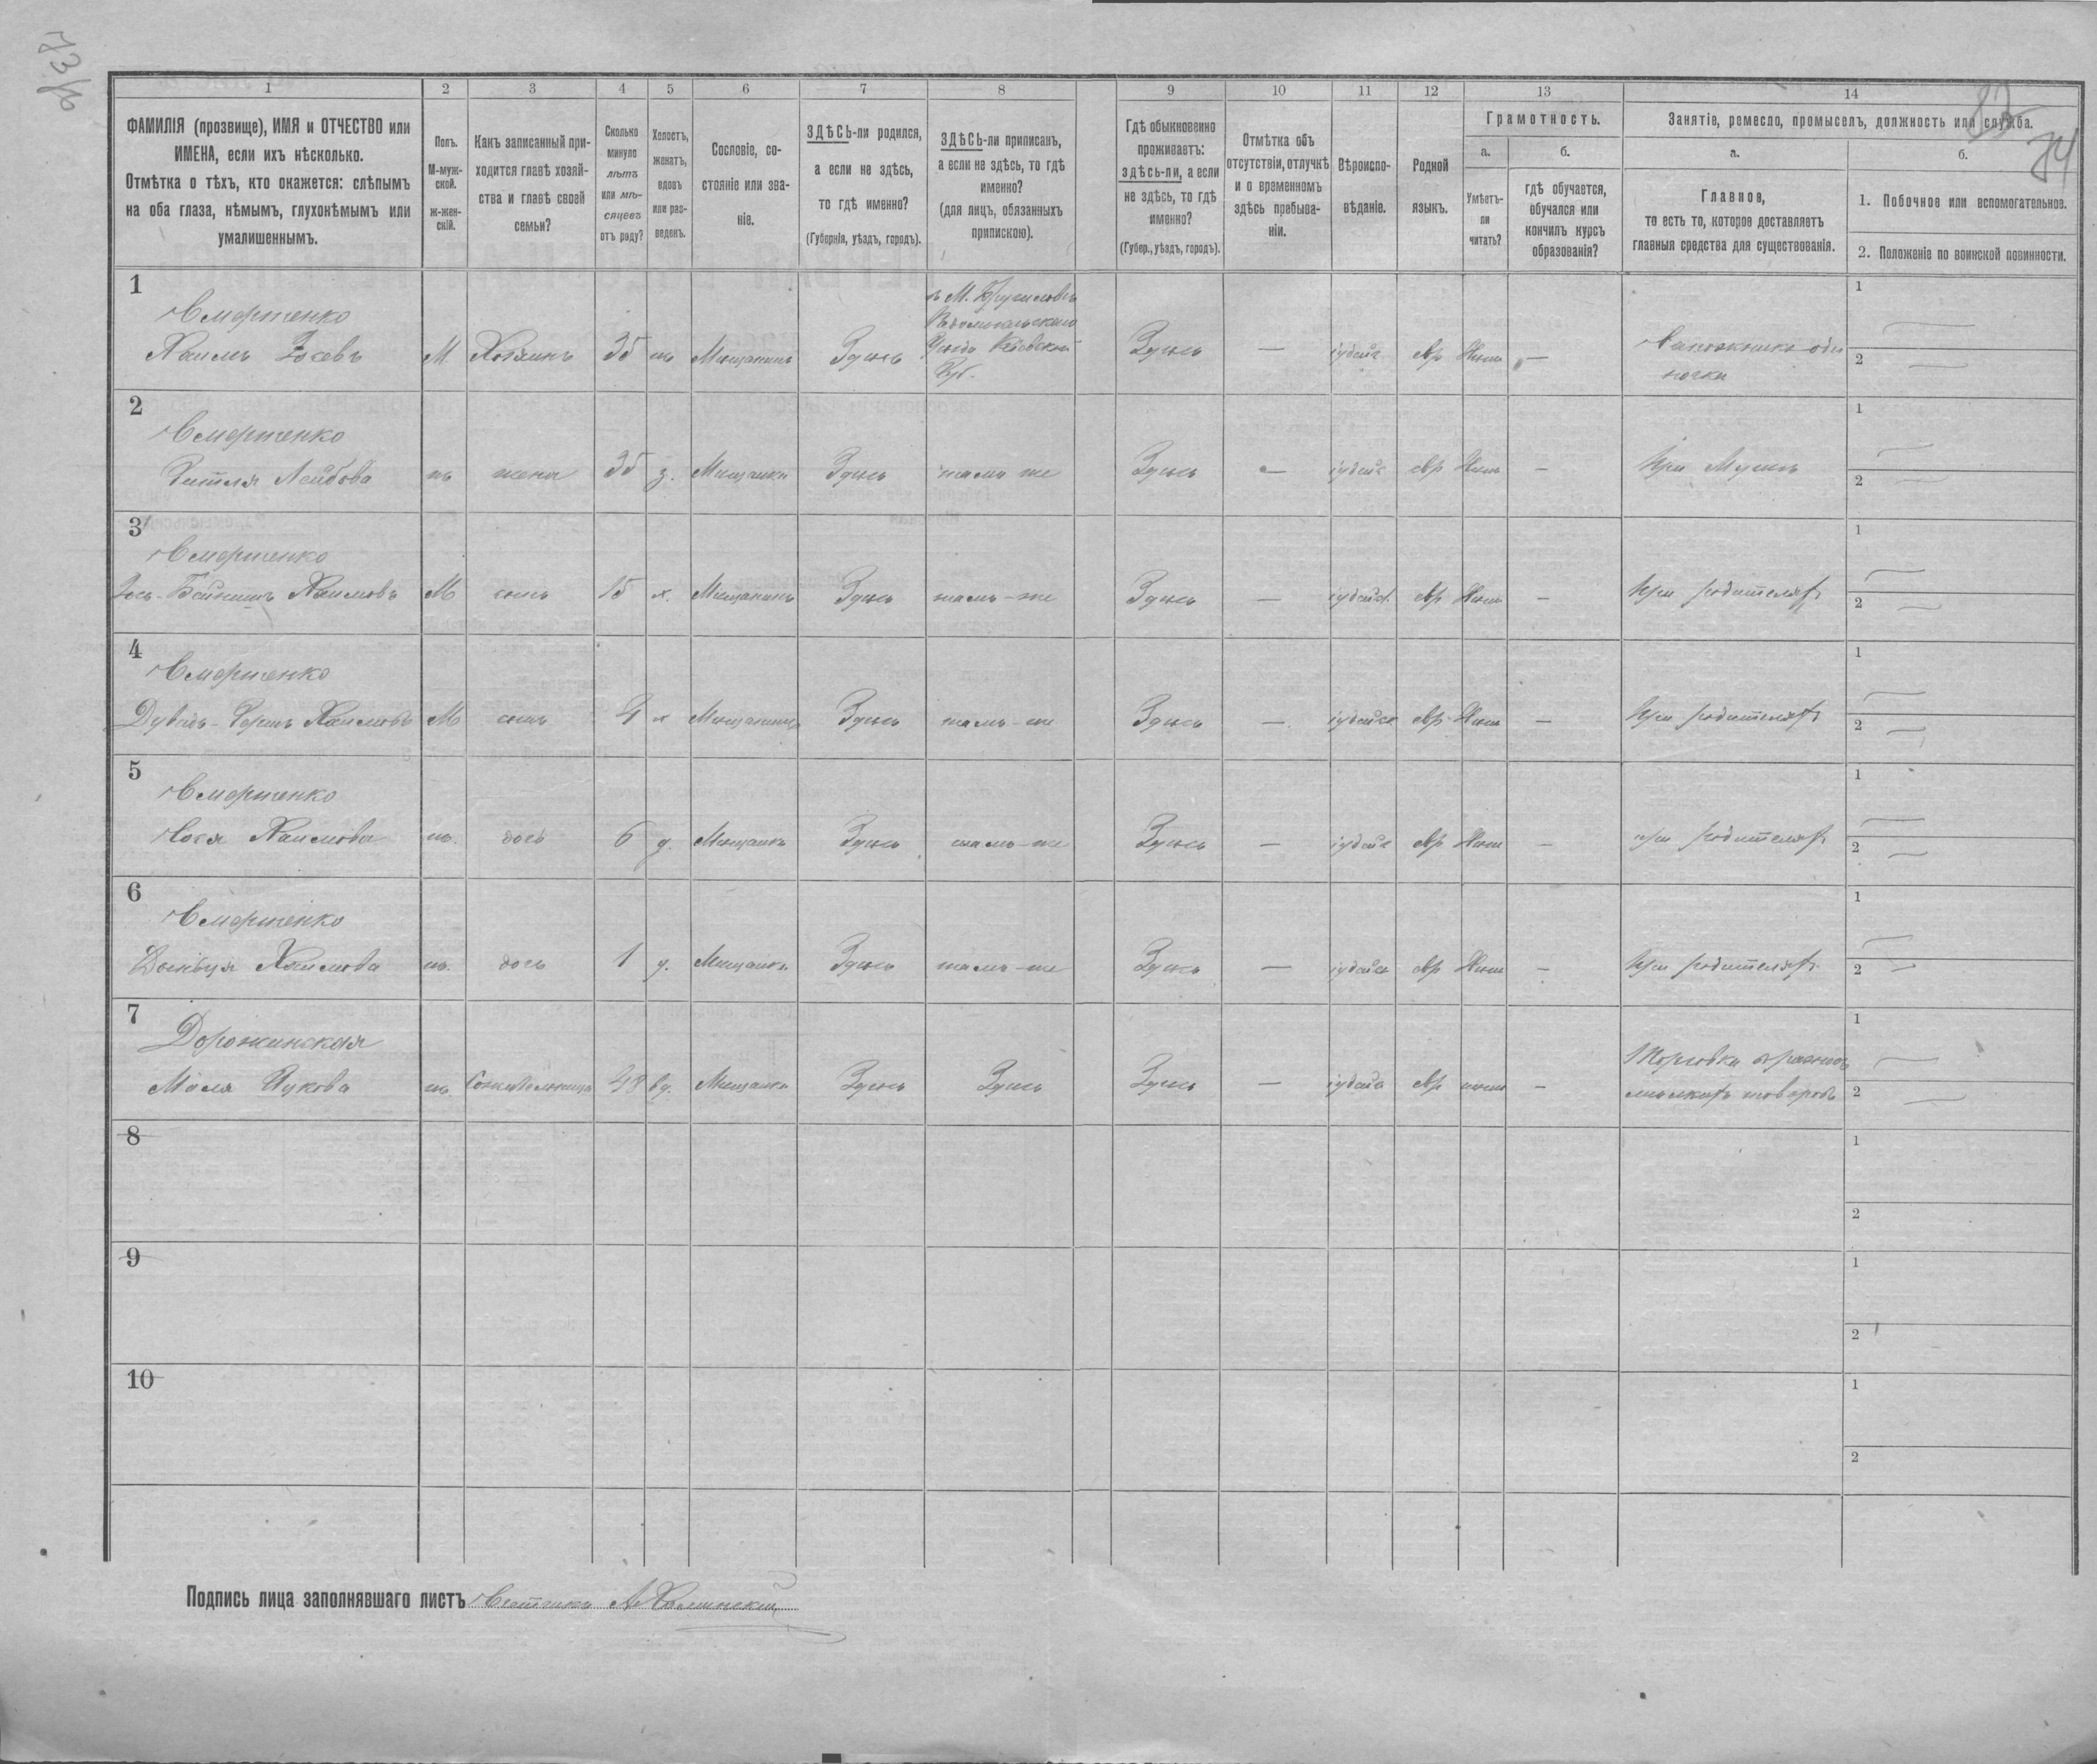 73/4
83
74
1
2
3
4
5
6
7
8
9
10
11
12
13
14
ФАМИЛІЯ (прозвище), ИМЯ и ОТЧЕСТВО или
ИМЕНА, если ихъ нѣсколько.
Отмѣтка о тѣхъ, кто окажется: слѣпымъ
на оба глаза, нѣмымъ, глухонѣмымъ или
умалишеннымъ.
Полъ.
М-муж-
ской.
ж-жен-
скій.
Какъ записанный при-
ходится главѣ хозяй-
ства и главѣ своей
семьи?
Сколько
минуло
лѣтъ
или мѣ-
сяцевъ
отъ роду?
Холостъ,
женатъ,
вдовъ
или раз-
веденъ.
Сословіе, со-
стояніе или зва-
ніе.
ЗДѢСЬ-ли родился,
а если не здѣсь,
то гдѣ именно?
(Губернія, уѣздъ, городъ).
ЗДѢСЬ-ли приписанъ,
а если не здѣсь, то гдѣ
именно?
(для лицъ, обязанныхъ
припискою).
Гдѣ обыкновенно
проживаетъ:
здѣсь-ли, а если
не здѣсь, то гдѣ
именно?
(Губер., уѣздъ, городъ).
Отмѣтка объ
отсутствіи, отлучкѣ
и о временномъ
здѣсь пребыва-
ніи.
Вѣроиспо-
вѣданіе.
Родной
языкъ.
Грамотность.
а.
Умѣетъ-
ли
читать?
б.
гдѣ обучается,
обучался или
кончилъ курсъ
образованія?
Занятіе, ремесло, промыселъ, должность или служба.
а.
Главное,
то есть то, которое доставляетъ
главныя средства для существованія.
б.
1. Побочное или вспомогательное.
2. Положеніе по воинской повинности.
1
Смертенко
Хаимъ
М Хозяинъ 35 Мещанинъ Здѣсь
Здѣсь — іудейс евр Нѣтъ —
1
2
2
Смертенко
Лейбова
жена 35 з. Мещанка Здѣсь тамъ же
Здѣсь — іудейс евр Нѣтъ — При Мужѣ
1
2
3
Смертенко
Хаимовъ
М сынъ 15 х. Мещанинъ Здѣсь тамъ-же
Здѣсь — іудейск евр Нѣтъ — При родителяхъ
1
2
4
Смертенко
Хаимовъ
М сынъ х Мещанинъ Здѣсь тамъ-же
Здѣсь — іудейск евр Нѣтъ — При родителяхъ
1
2
5
Смертенко
Хаимова
дочь 6 д. Мещанка Здѣсь тамъ-же
Здѣсь — іудейс евр Нѣтъ — при родителяхъ
1
2
6
Смертенко
Хаимова
дочь 1 д. Мещанка Здѣсь тамъ-же
Здѣсь — іудейск евр Нѣтъ — При родителяхъ
1
2
7
Дорожинская
Маля
48 вд. Мещанка Здѣсь Здѣсь
Здѣсь — евр нѣтъ — Торговка
товаровъ
1
2
8
1
2
9
1
2
10
1
2
Подпись лица заполнявшаго листъ